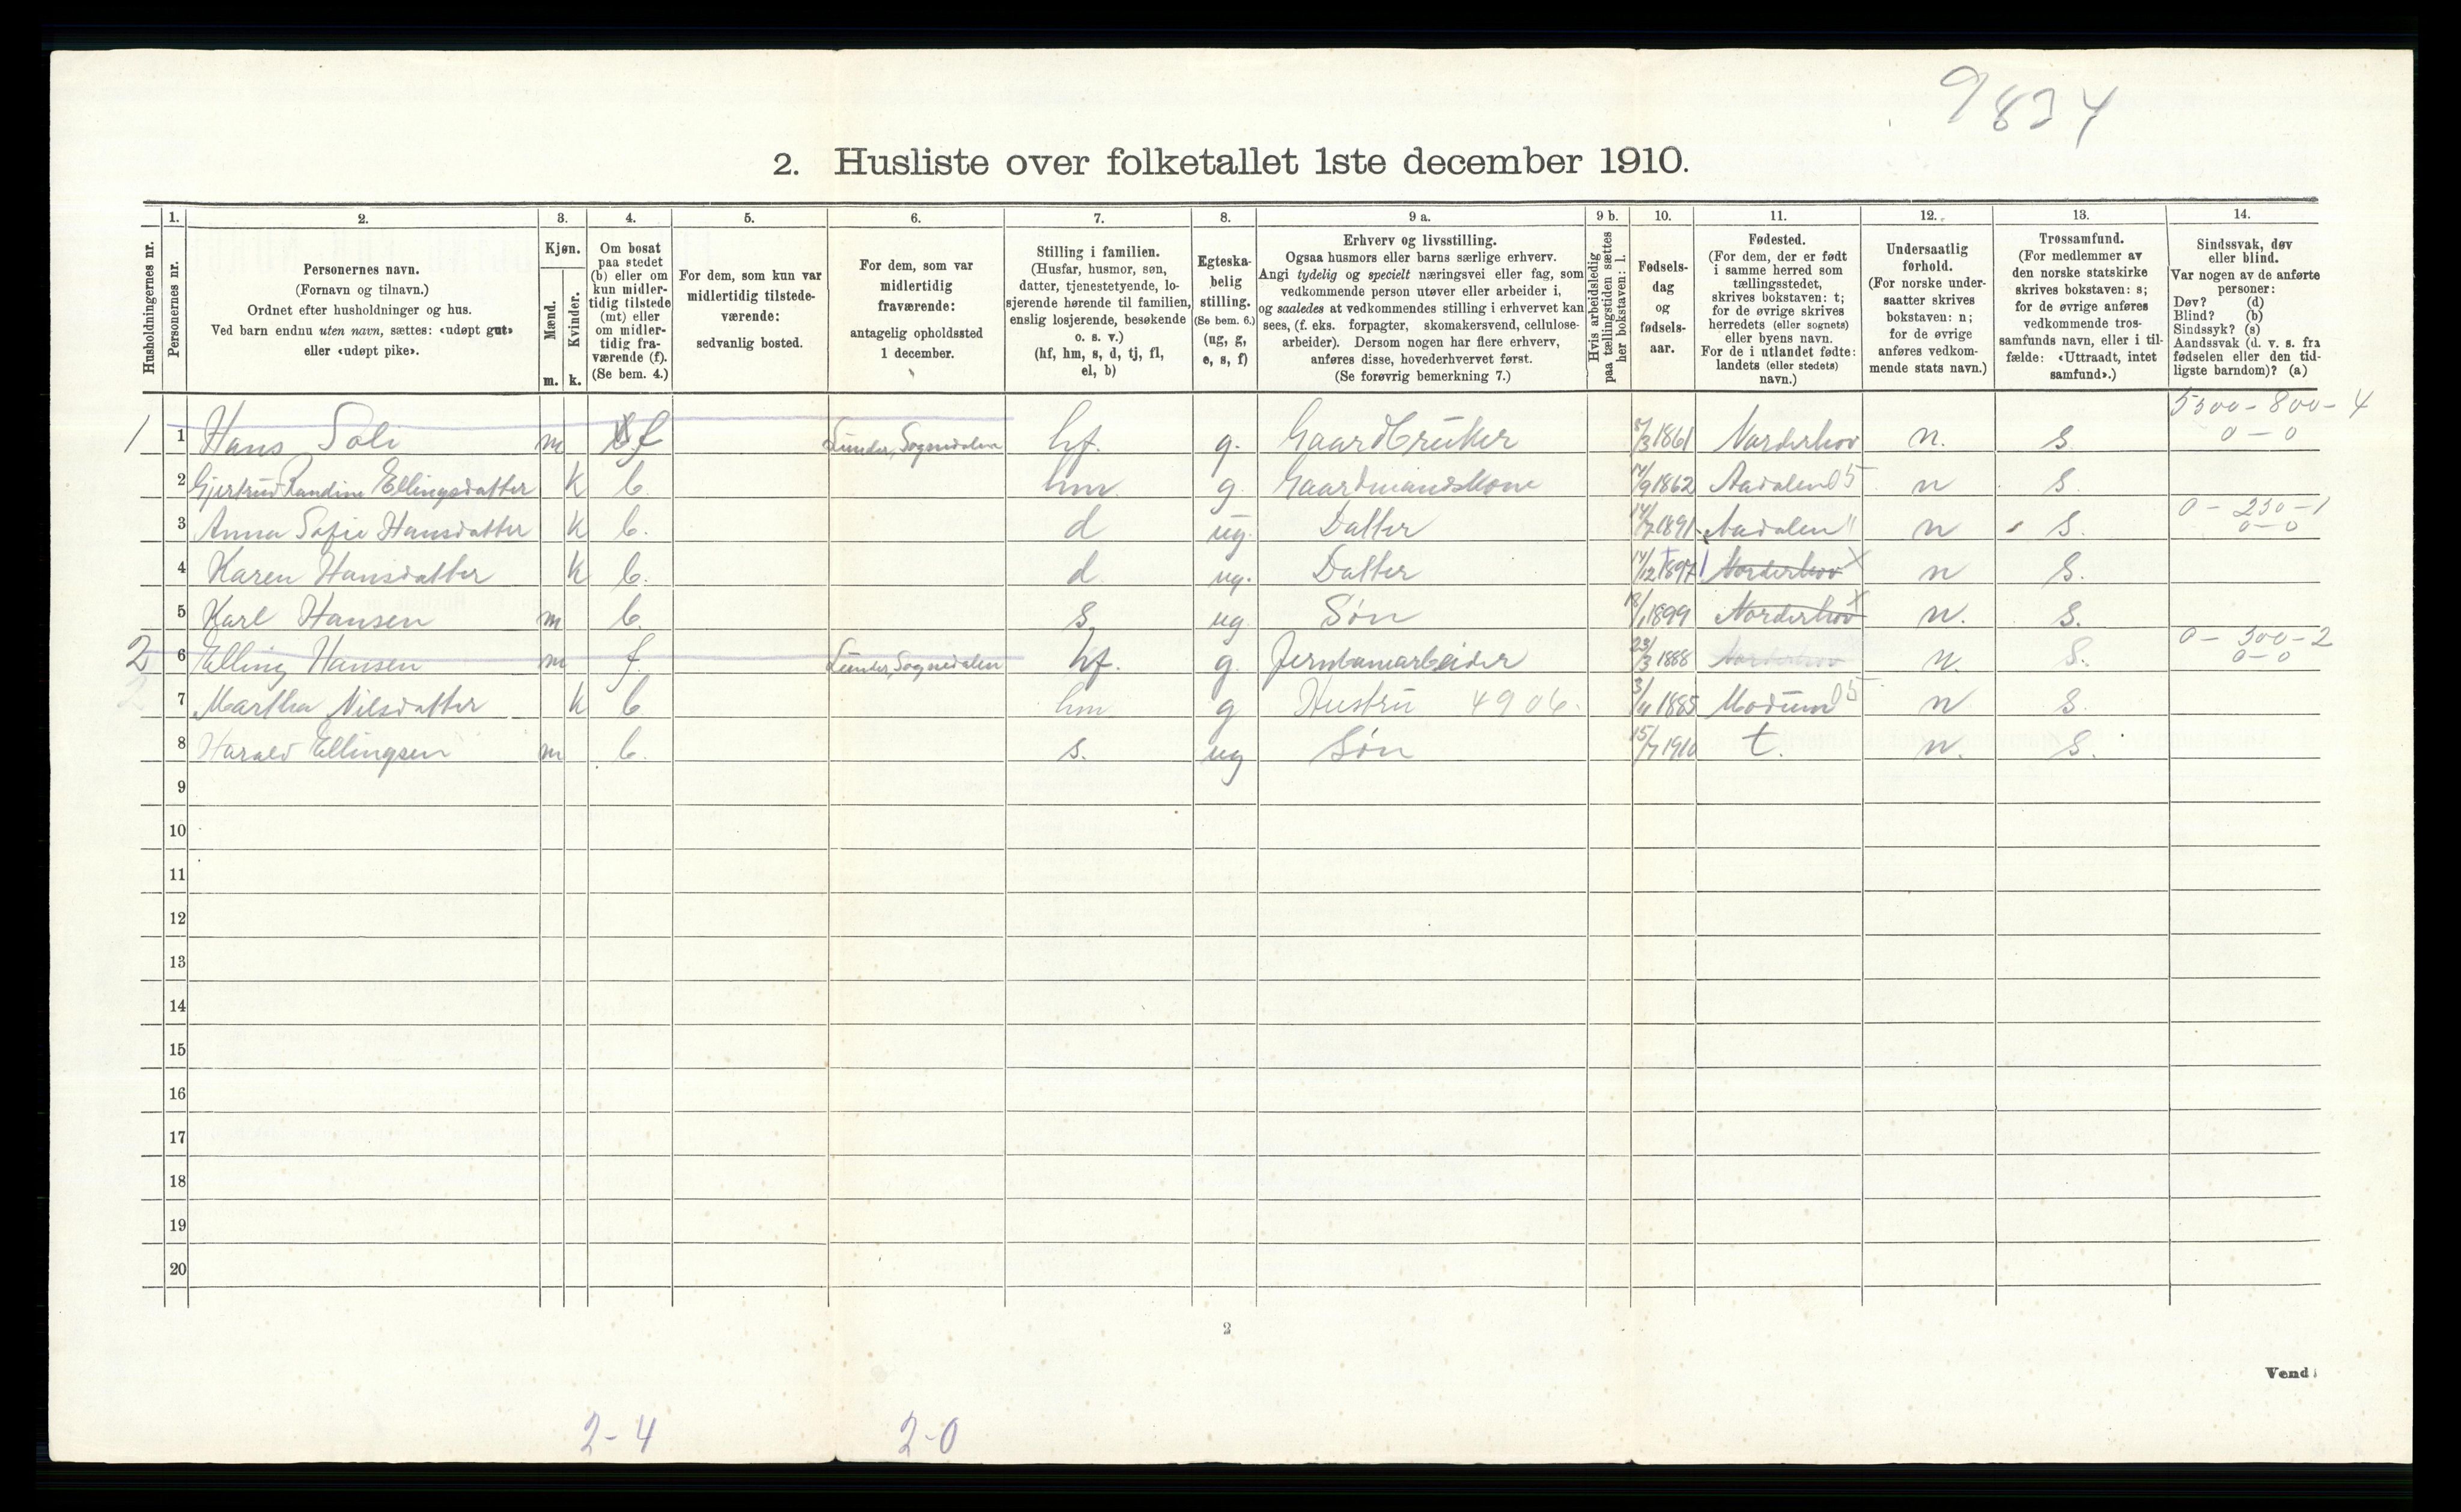 9834
2. Husliste over folketallet 1ste december 1910.
Husholdningernes nr.
1. Personernes nr.
2. Personernes navn.
(Fornavn og tilnavn.)
Ordnet efter husholdninger og hus.
Ved barn endnu uten navn, sættes: «udøpt gut»
eller «udøpt pike».
3. Kjøn.
Mænd. Kvinder.
m. k.
4. Om bosat
paa stedet
(b) eller om
kun midler-
tidig tilstede
(mt) eller
om midler-
tidig fra-
værende (f).
(Se bem. 4.)
5. For dem, som kun var
midlertidig tilstede-
værende:
sedvanlig bosted.
6. For dem, som var
midlertidig
fraværende:
antagelig opholdssted
1 december.
7. Stilling i familien.
(Husfar, husmor, søn,
datter, tjenestetyende, lo-
sjerende hørende til familien,
enslig losjerende, besøkende
o. s. v.)
(hf, hm, s, d, tj, fl,
el, b)
8. Egteska-
belig
stilling.
(Se bem. 6.)
(ug, g,
e, s, f)
9 a. Erhverv og livsstilling.
Ogsaa husmors eller barns særlige erhverv.
Angi tydelig og specielt næringsvei eller fag, som
vedkommende person utøver eller arbeider i,
og saaledes at vedkommendes stilling i erhvervet kan
sees, (f. eks. forpagter, skomakersvend, cellulose-
arbeider). Dersom nogen har flere erhverv,
anføres disse, hovederhvervet først.
(Se forøvrig bemerkning 7.)
9 b. Hvis arbeidsledig
paa tællingstiden sættes
her bokstaven: l.
10. Fødsels-
dag
og
fødsels-
aar.
11. Fødested.
(For dem, der er født
i samme herred som
tællingsstedet,
skrives bokstaven: t;
for de øvrige skrives
herredets (eller sognets)
eller byens navn.
For de i utlandet fødte:
landets (eller stedets)
navn.)
12. Undersaatlig
forhold.
(For norske under-
saatter skrives
bokstaven: n;
for de øvrige
anføres vedkom-
mende stats navn.)
13. Trossamfund.
(For medlemmer av
den norske statskirke
skrives bokstaven: s;
for de øvrige anføres
vedkommende tros-
samfunds navn, eller i til-
fælde: «Uttraadt, intet
samfund».)
14. Sindssvak, døv
eller blind.
Var nogen av de anførte
personer:
Døv? (d)
Blind? (b)
Sindssyk? (s)
Aandssvak (d. v. s. fra
fødselen eller den tid-
ligste barndom)? (a)
5300-800-4
1 1 Hans Soli m f Lunder, Sognedalen hf. g. Gaardbruker /3 1861 Norderhov n. s. 0-0
2 Gjertrud Randine Ellingsdatter k b. hm g. Gaardmandskone /9 1862 Aadalen 05 n s.
3 Anna Sofie Hansdatter k b. d ug. Datter 14/7 1891 Aadalen " n s. 0-230-1 0-0
4 Karen Hansdatter k b. d ug. Datter 14/12 1897 Norderhov x n s.
5 Karl Hansen m b. s. ug. Søn 18/1 1899 Norderhov x n. s.
2 6 Elling Hansen m f. Lunder, Sognedalen hf. g. Jernbanearbeider 23/3 1888 Norderhov n. s. 0-300-2 0-0
7 Martha Nilsdatter k b hm g Hustru 4906. 3/11 1885 Modum 05 n s.
8 Harald Ellingsen m b. s. ug Søn 15/7 1910 t. n. s.
9
10
11
12
13
14
15
16
17
18
19
20
2
Vend!
2-4 2-0